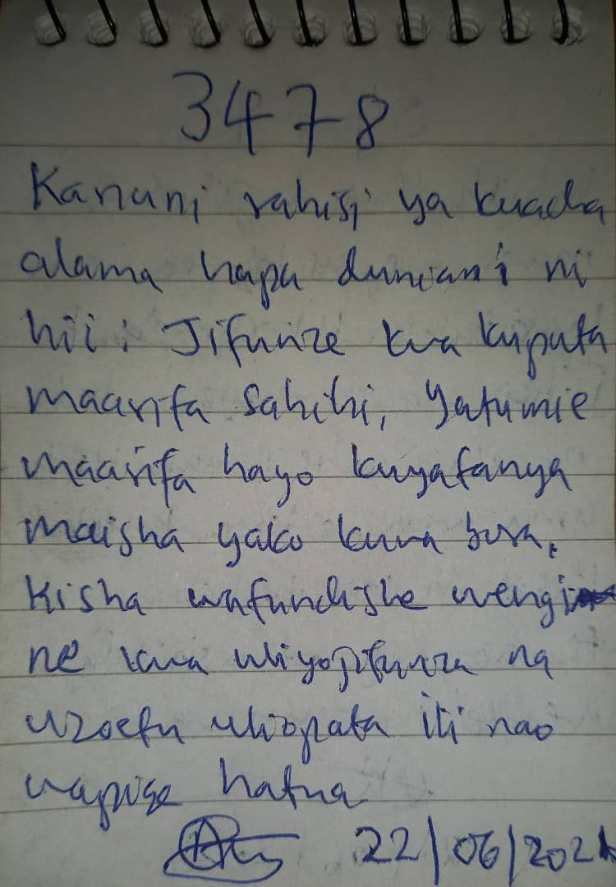 3478
Kanuni rahisi ya kuacha
alama hapa duniani ni
hii: Jifunze kwa kupata
maarifa sahihi, yatumie
maarifa hayo kuyafanya
maisha yako kuwa bora,
kisha wafundishe wengi
ne kwa uliyojifunza na
uzoefu uliopata ili nao
wapige hatua
22/06/202